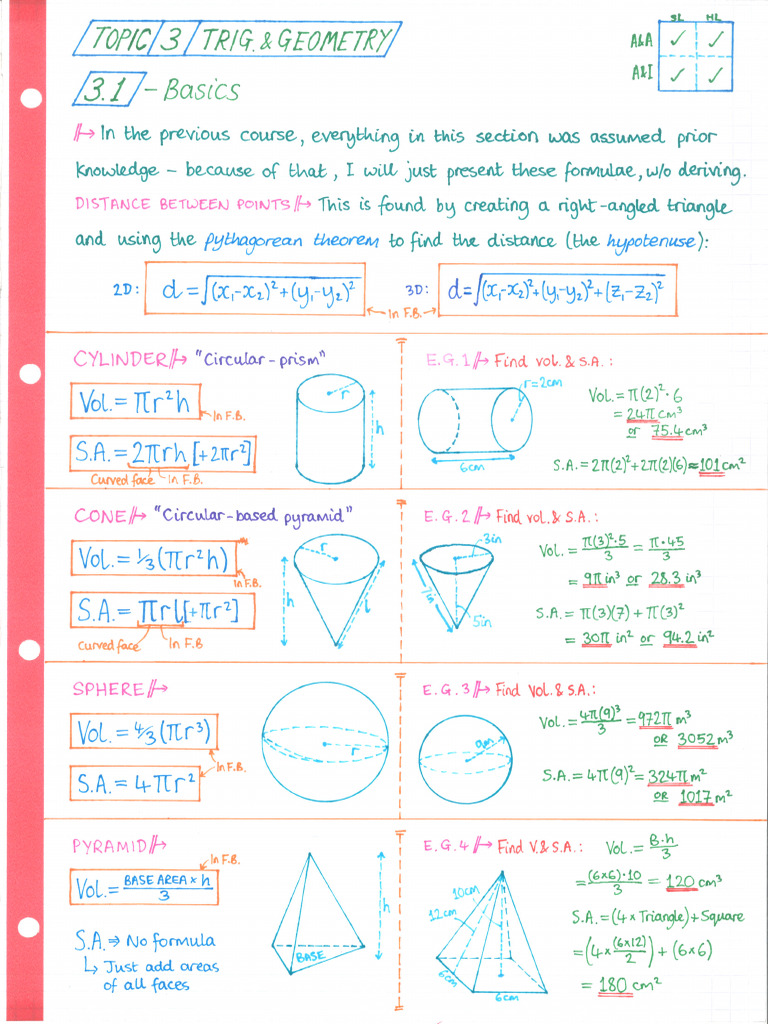 TOPIC 3 TRIG. & GEOMETRY
SL HL
A&A ✓ ✓
A&I ✓ ✓
3.1 - Basics
↦ In the previous course, everything in this section was assumed prior
knowledge – because of that, I will just present these formulae, w/o deriving.
DISTANCE BETWEEN POINTS ↦ This is found by creating a right-angled triangle
and using the pythagorean theorem to find the distance (the hypotenuse):
2D: d = √(x₁-x₂)²+(y₁-y₂)²
3D: d = √(x₁-x₂)²+(y₁-y₂)²+(z₁-z₂)²
← In F.B. →
CYLINDER ↦ "Circular-prism"
Vol. = πr²h
In F.B.
S.A. = 2πrh [+2πr²]
Curved face In F.B.
r
h
E.G.1 ↦ Find vol. & S.A.:
r=2cm
6cm
Vol. = π(2)²·6
= 24π cm³
or 75.4 cm³
S.A. = 2π(2)²+2π(2)(6) ≈ 101 cm²
CONE ↦ "Circular-based pyramid"
Vol. = 1/3(πr²h)
In F.B.
S.A. = πrl [+πr²]
Curved face In F.B.
r
h
l
E.G.2 ↦ Find vol. & S.A.:
3in
7in
5in
Vol. = π(3)²·5/3 = π·45/3
= 9π in³ or 28.3 in³
S.A. = π(3)(7) + π(3)²
= 30π in² or 94.2 in²
SPHERE ↦
Vol. = 4/3(πr³)
In F.B.
S.A. = 4πr²
r
E.G.3 ↦ Find Vol. & S.A.:
9m
Vol. = 4π(9)³/3 = 972π m³
OR 3052 m³
S.A. = 4π(9)² = 324π m²
OR 1017 m²
PYRAMID ↦
In F.B.
Vol. = BASE AREA × h/3
S.A. → No formula
↳ Just add areas
of all faces
h
BASE
E.G.4 ↦ Find V. & S.A.:
10cm
12cm
6cm
6cm
Vol. = B·h/3
= (6×6)·10/3 = 120 cm³
S.A. = (4 × Triangle) + Square
= (4 × (6×12)/2) + (6×6)
= 180 cm²